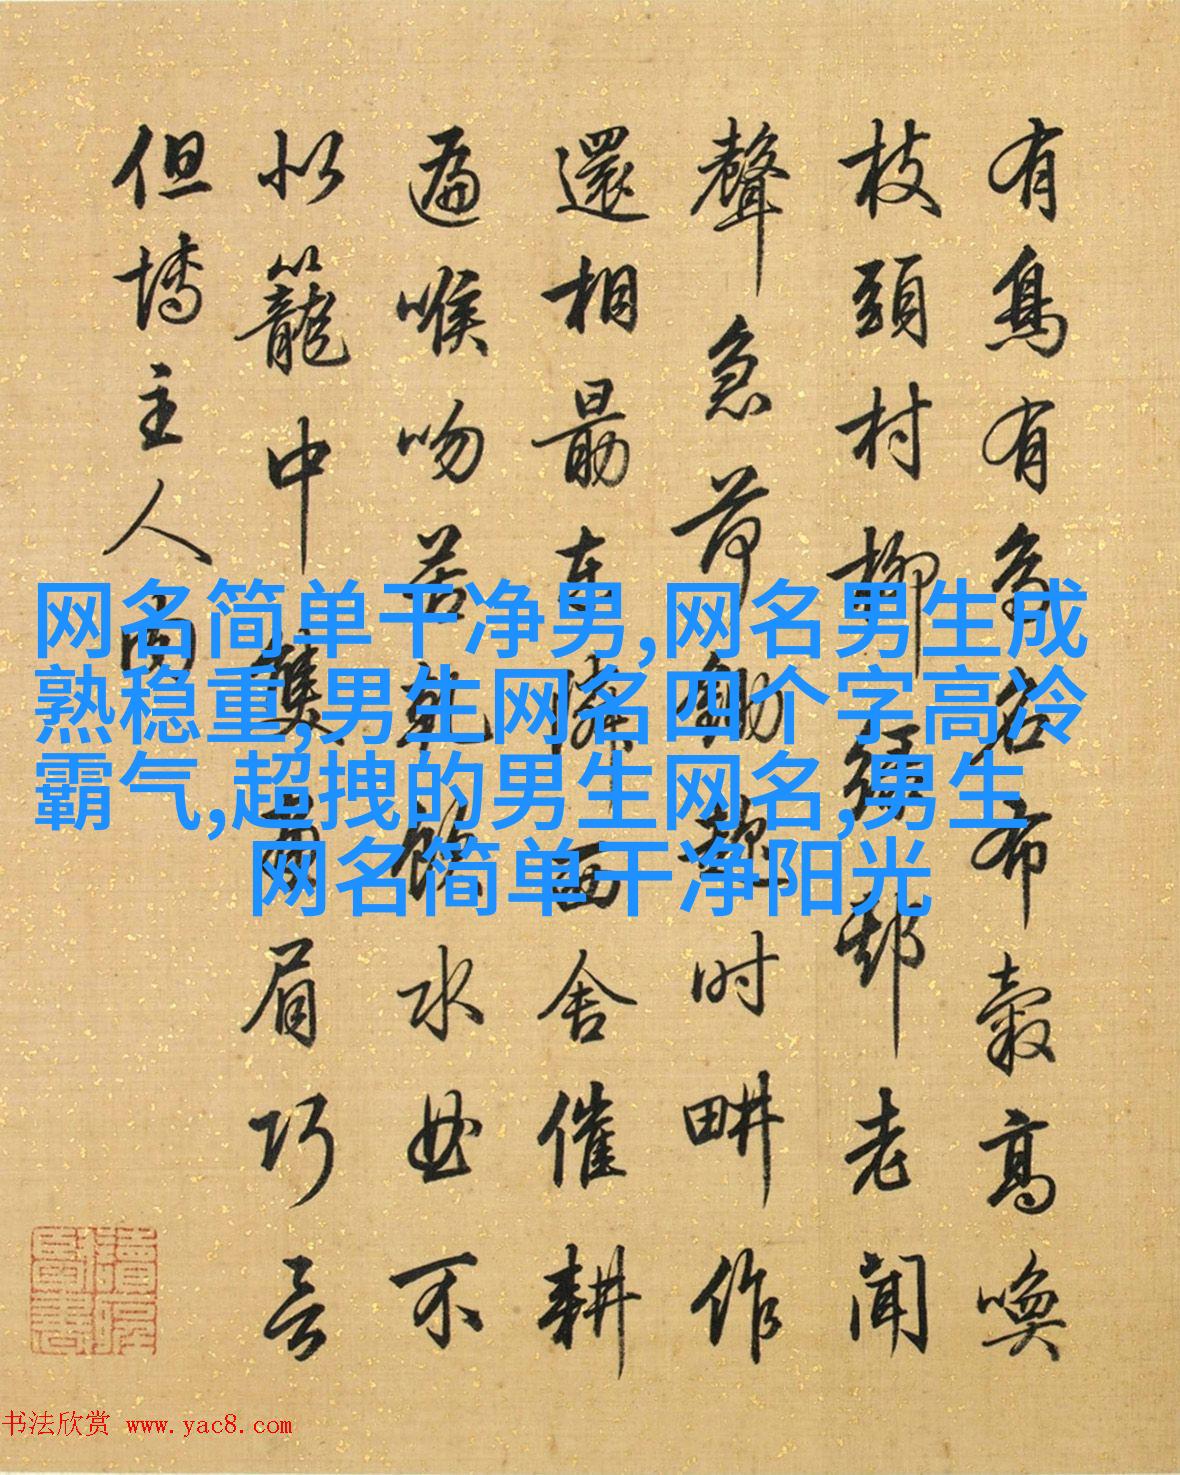 有鳥有鳥名布穀高喚
枝頭村柳綠邨老聞
聲急荷鋤趁时畊作
還相勗東隣西舍催耕
遍喉吻苦乾飲水曲不
似籠中雙畫眉巧言
但博主人肉
网名简单干净男,网名男生成
熟稳重,男生网名四个字高冷
霸气,超拽的男生网名,男生
网名简单干净阳光
书法欣赏 www.yac8.com